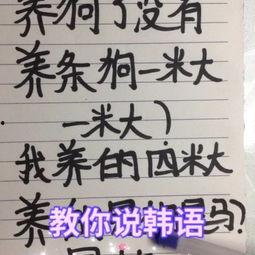 养狗了没有
养条狗一米大
一米大)
我养的四米大
养
吗?
教你说韩语